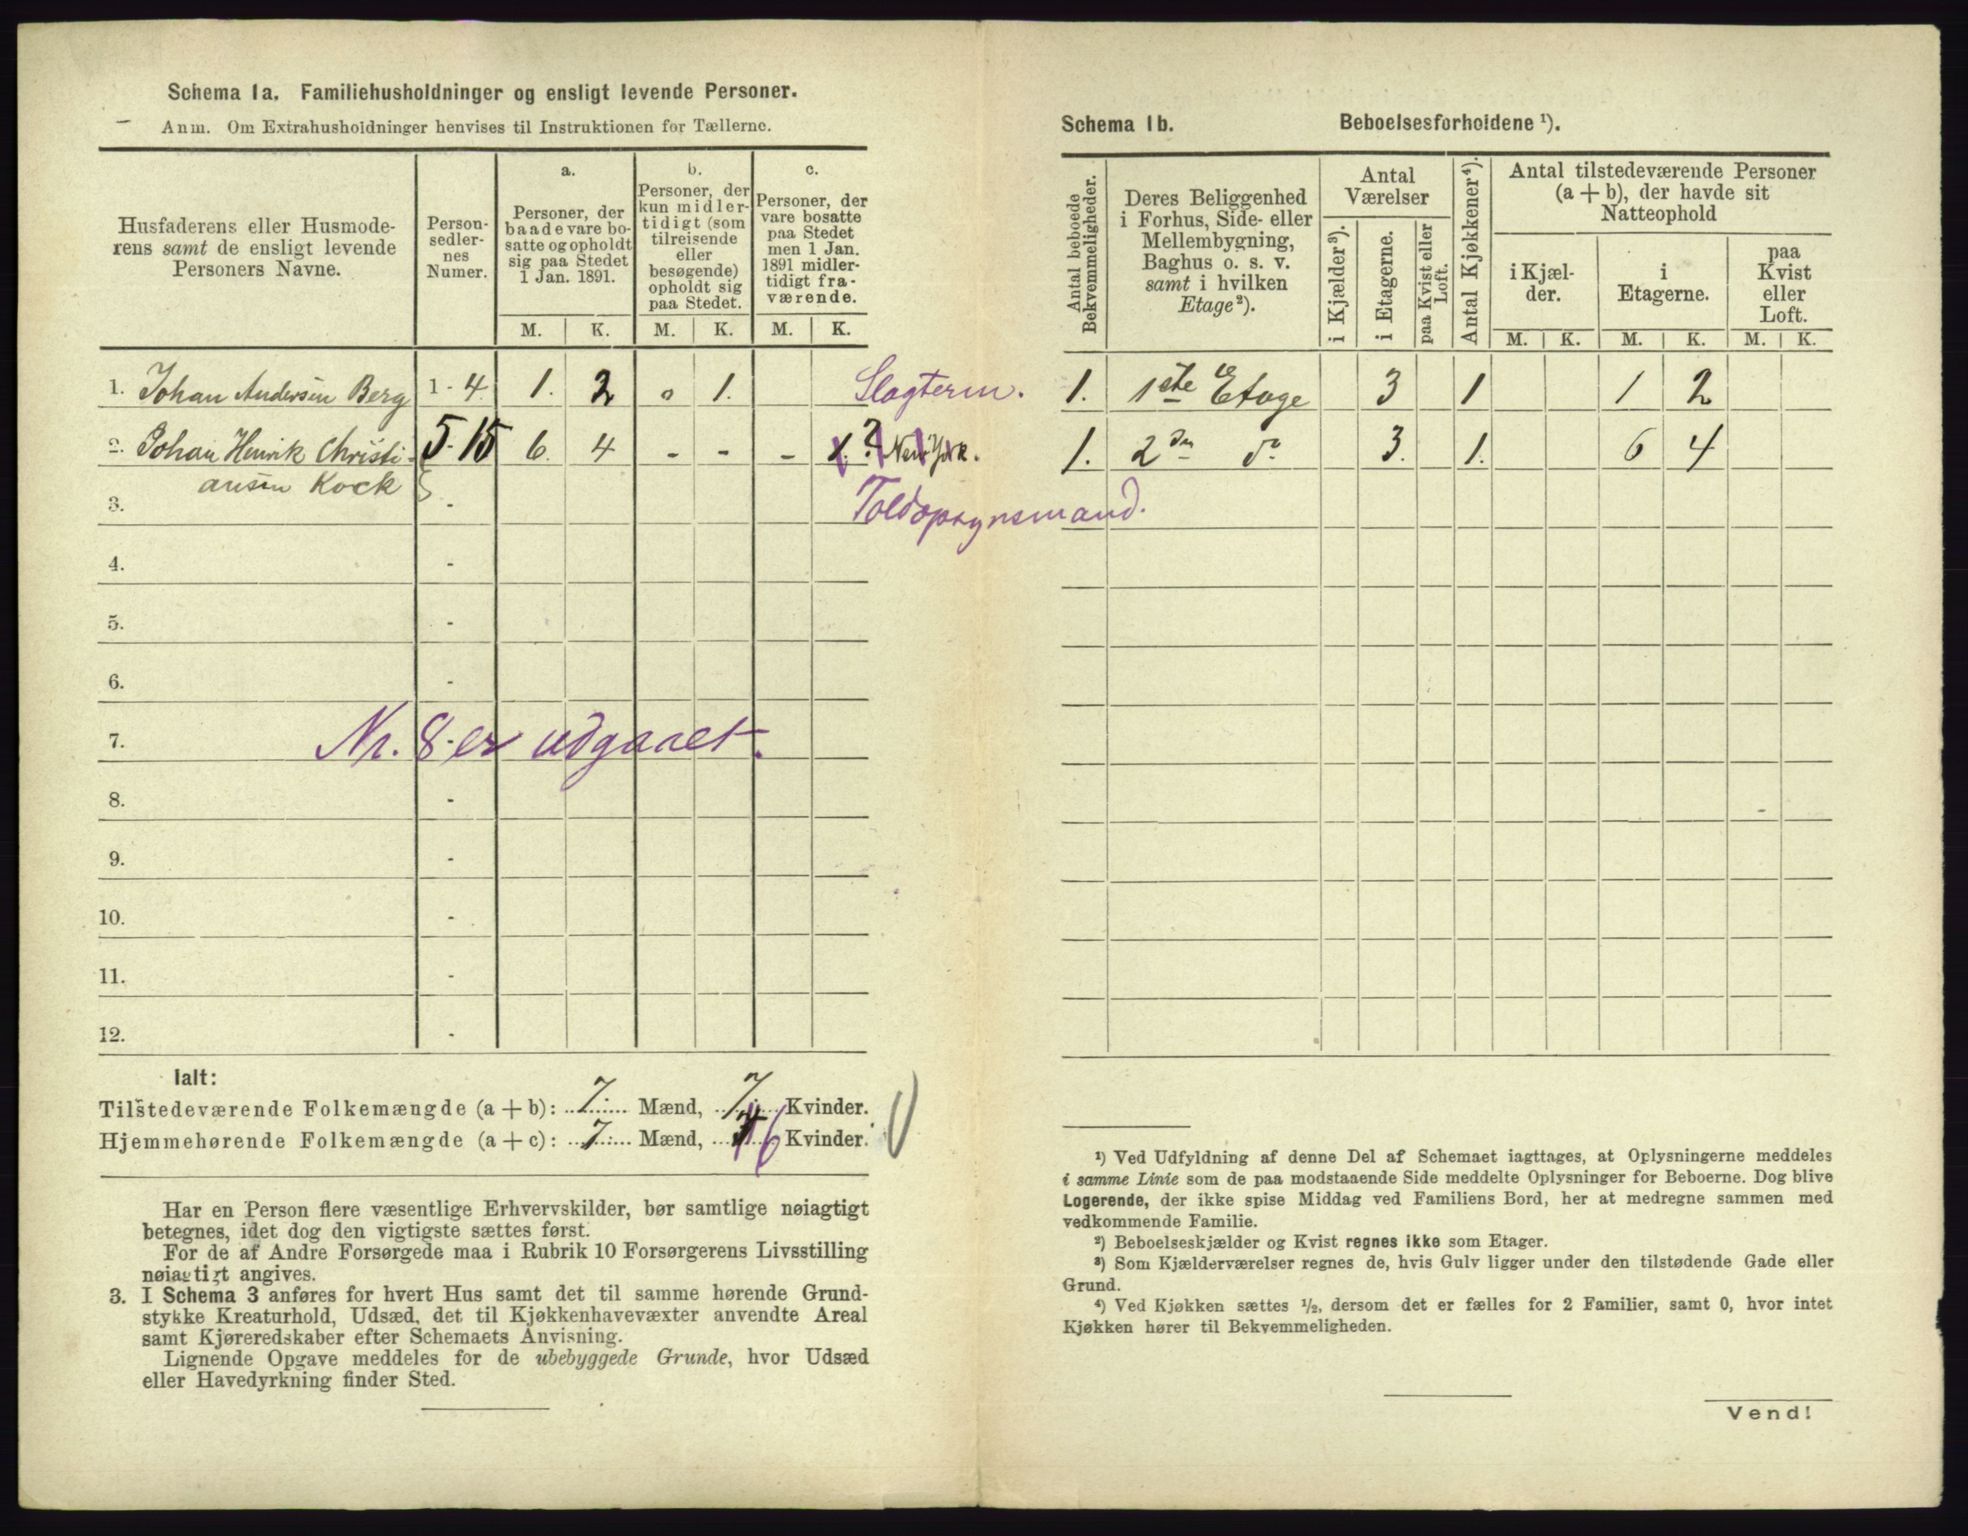 Schema 1a. Familiehusholdninger og ensligt levende Personer.
Anm. Om Extrahusholdninger henvises til Instruktionen for Tællerne.
Husfaderens eller Husmode-
rens samt de ensligt levende
Personers Navne.
Person-
sedler-
nes
Numer.
a.
Personer, der
baade vare bo-
satte og opholdt
sig paa Stedet
1 Jan. 1891.
b.
Personer, der
kun midler-
tidigt (som
tilreisende
eller
besøgende)
opholdt sig
paa Stedet.
c.
Personer, der
vare bosatte
paa Stedet
men 1 Jan.
1891 midler-
tidigt fra-
værende.
M. K. M. K. M. K.
1. Johan Andersen Berg 1 - 4 1. 2 0 1. Slagterm.
2. Johan Henrik Christi- 5 - 15 6. 4 - - - 1. ? New York.
ansen Kock
3. - Toldopsynsmand.
4. -
5. -
6. -
7. Nr. 8 er udgaaet.
8. -
9. -
10. -
11. -
12. -
Ialt:
Tilstedeværende Folkemængde (a + b): 7. Mænd, 7. Kvinder.
Hjemmehørende Folkemængde (a + c): 7. Mænd, 6 Kvinder.
Har en Person flere væsentlige Erhvervskilder, bør samtlige nøiagtigt
betegnes, idet dog den vigtigste sættes først.
For de af Andre Forsørgede maa i Rubrik 10 Forsørgerens Livsstilling
nøiagtigt angives.
3. I Schema 3 anføres for hvert Hus samt det til samme hørende Grund-
stykke Kreaturhold, Udsæd, det til Kjøkkenhavevæxter anvendte Areal
samt Kjøreredskaber efter Schemaets Anvisning.
Lignende Opgave meddeles for de ubebyggede Grunde, hvor Udsæd
eller Havedyrkning finder Sted.
Schema 1b. Beboelsesforholdene ¹).
Antal beboede
Bekvemmeligheder.
Deres Beliggenhed
i Forhus, Side- eller
Mellembygning,
Baghus o. s. v.
samt i hvilken
Etage²).
Antal
Værelser
i Kjælder³).
i Etagerne.
paa Kvist eller
Loft.
Antal Kjøkkener⁴).
Antal tilstedeværende Personer
(a + b), der havde sit
Natteophold
i Kjæl-
der.
i
Etagerne.
paa
Kvist
eller
Loft.
M. K. M. K. M. K.
1. 1ste Etage 3 1 1 2
1. 2den do 3. 1. 6 4
¹) Ved Udfyldning af denne Del af Schemaet iagttages, at Oplysningerne meddeles
i samme Linie som de paa modstaaende Side meddelte Oplysninger for Beboerne. Dog blive
Logerende, der ikke spise Middag ved Familiens Bord, her at medregne sammen med
vedkommende Familie.
²) Beboelseskjælder og Kvist regnes ikke som Etager.
³) Som Kjælderværelser regnes de, hvis Gulv ligger under den tilstødende Gade eller
Grund.
⁴) Ved Kjøkken sættes ½, dersom det er fælles for 2 Familier, samt 0, hvor intet
Kjøkken hører til Bekvemmeligheden.
Vend!